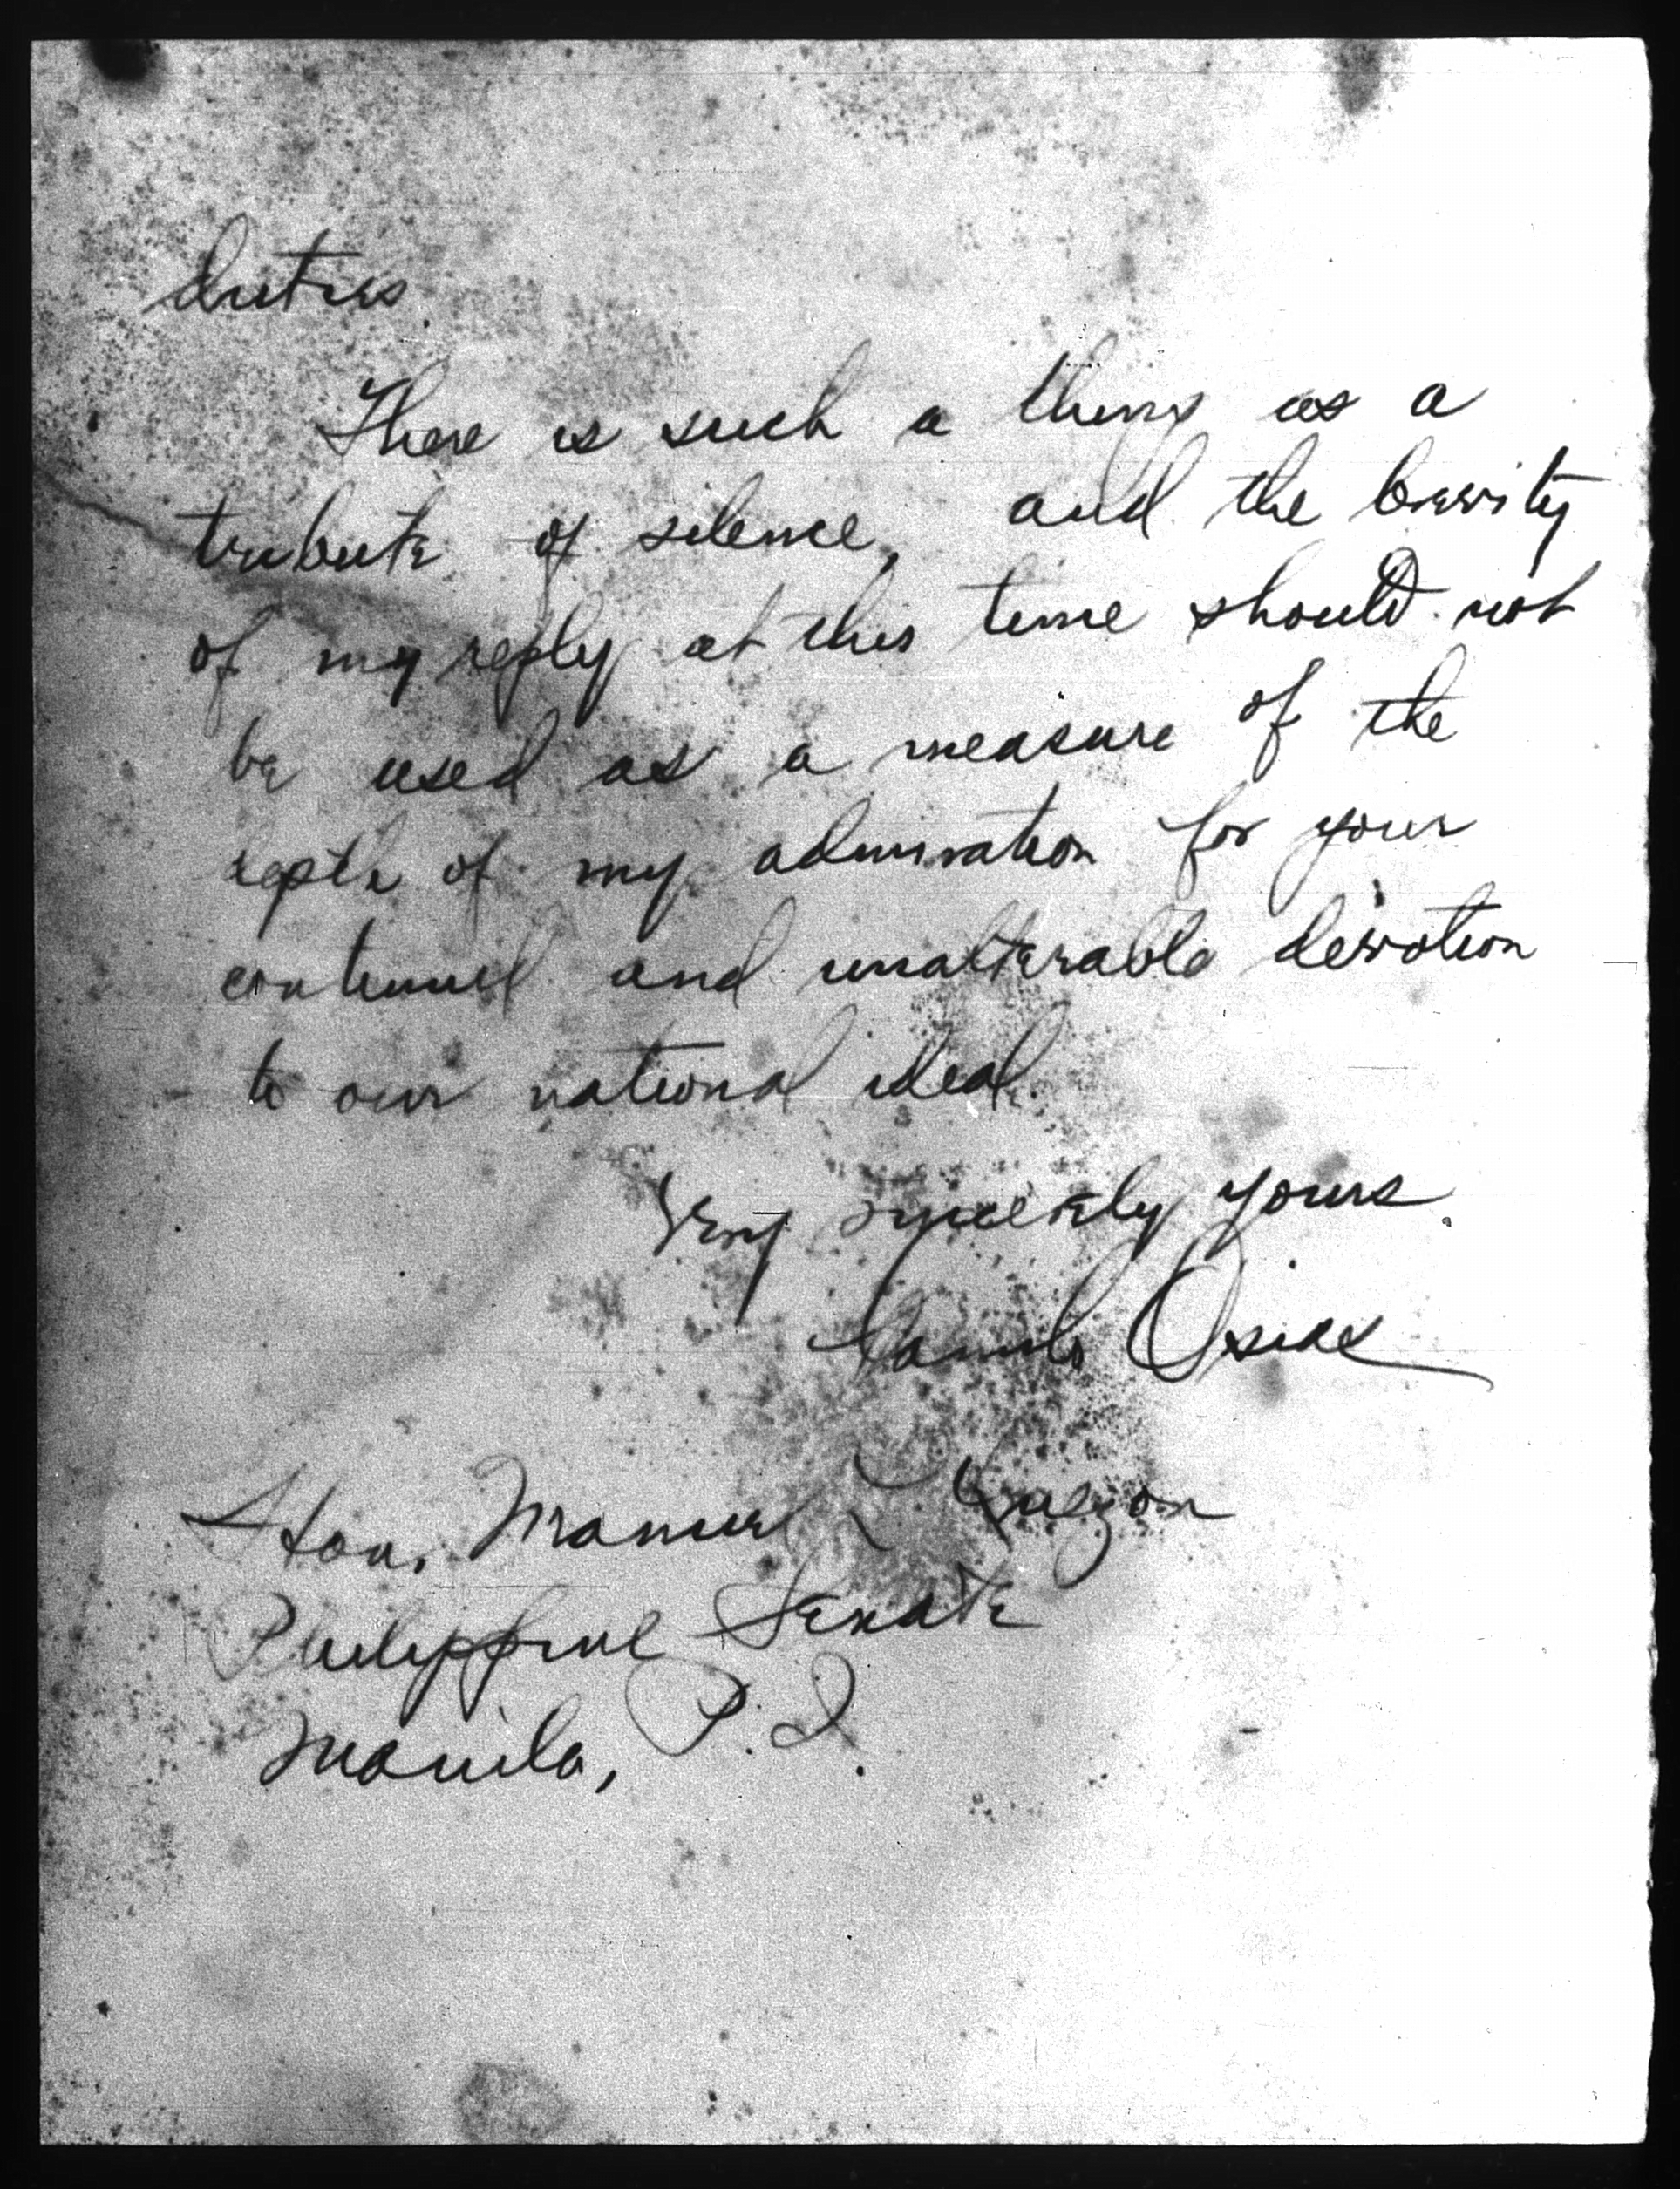 duties.
There is such a thing as a
tribute of silence, and the brevity
of my reply at this time should not
be used as a measure of the
depth of my admiration for your
continued and unalterable devotion
to our national ideal.
Very sincerely yours,
Camilo Osias
Hon. Manuel L Quezon
Philippine Senate
Manila, P. I.